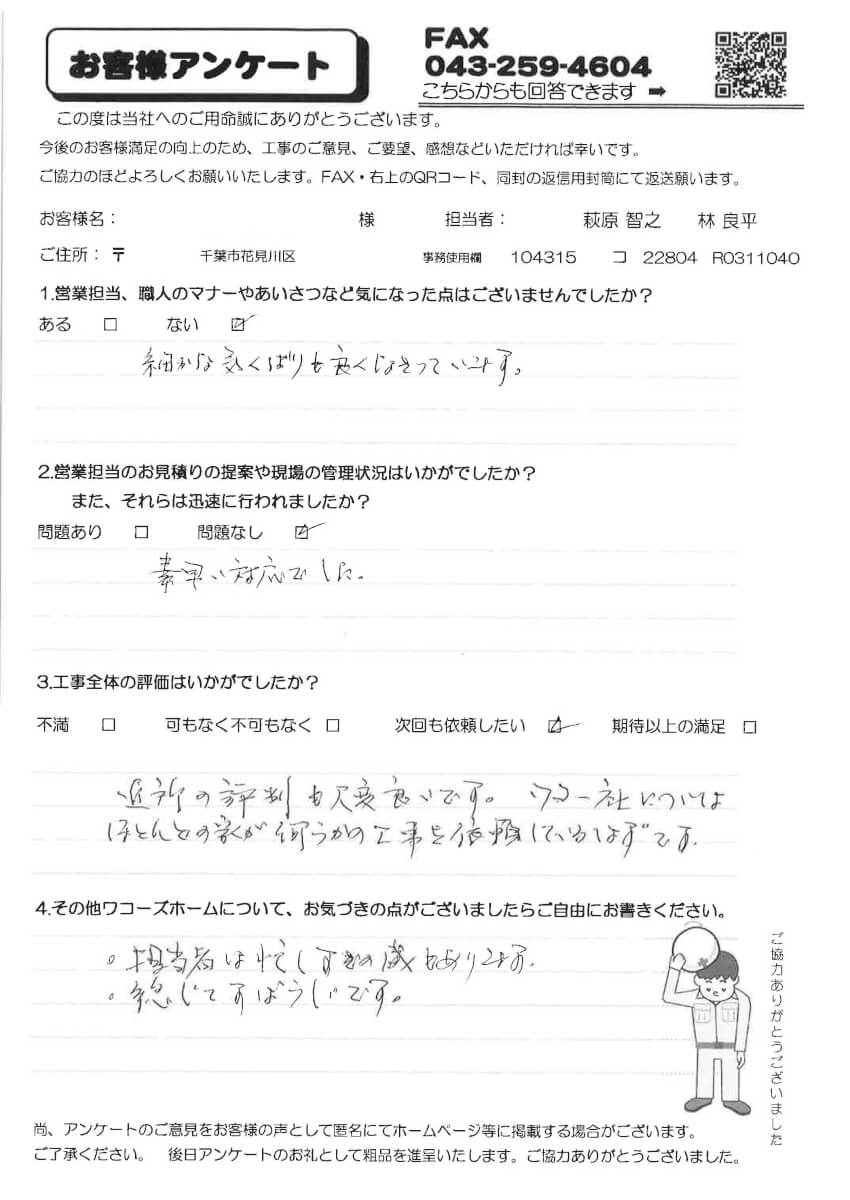 お客様アンケート
FAX
043-259-4604
こちらからも回答できます ➡
この度は当社へのご用命誠にありがとうございます。
今後のお客様満足の向上のため、工事のご意見、ご要望、感想などいただければ幸いです。
ご協力のほどよろしくお願いいたします。FAX・右上のQRコード、同封の返信用封筒にて返送願います。
お客様名： 様 担当者： 萩原 智之 林 良平
ご住所：〒 千葉市花見川区 事務使用欄 104315 コ 22804 R0311040
1.営業担当、職人のマナーやあいさつなど気になった点はございませんでしたか？
ある □ ない ☑
細かな気くばりも良くなさっています。
2.営業担当のお見積りの提案や現場の管理状況はいかがでしたか？
また、それらは迅速に行われましたか？
問題あり □ 問題なし ☑
素早い対応でした。
3.工事全体の評価はいかがでしたか？
不満 □ 可もなく不可もなく □ 次回も依頼したい ☑ 期待以上の満足 □
近所の評判も大変良いです。ワコー社については
ほとんどの家が何らかの工事を依頼しているはずです.
4.その他ワコーズホームについて、お気づきの点がございましたらご自由にお書きください。
。担当者は忙しすぎの感もあります.
。総じてすばらしいです。
ご協力ありがとうございました
尚、アンケートのご意見をお客様の声として匿名にてホームページ等に掲載する場合がございます。
ご了承ください。 後日アンケートのお礼として粗品を進呈いたします。ご協力ありがとうございました。